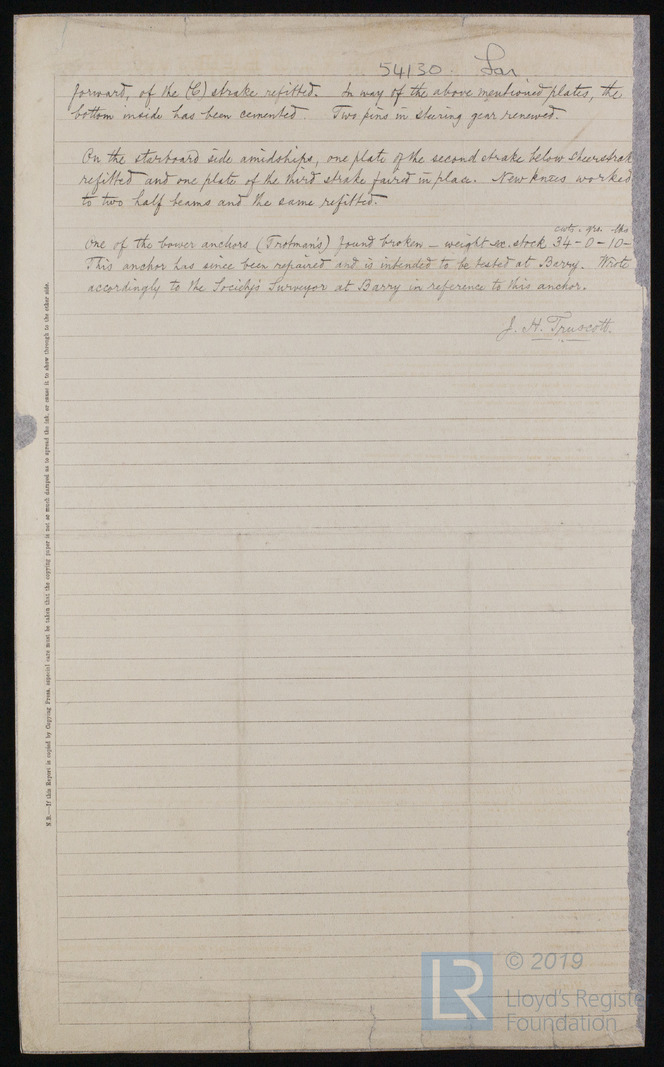 54130. Lon
forward, of the (C) strake refitted. In way of the above mentioned plates, the
bottom inside has been cemented. Two pins in steering gear renewed.
On the starboard side amidships, one plate of the second strake below sheerstrake
refitted and one plate of the third strake faired in place. New knees worked
to two half beams and the same refitted.
cwts. qrs. lbs
One of the bower anchors (Trotman's) found broken – weight ex. stock 34-0-10-
This anchor has since been repaired and is intended to be tested at Barry. Wrote
accordingly to the Society's Surveyor at Barry in reference to this anchor.
J. H. Truscott.
N.B.—If this Report is copied by Copying Press, especial care must be taken that the copying paper is not so much damped as to spread the ink, or cause it to show through to the other side.
LR
© 2019
Lloyd's Register
Foundation